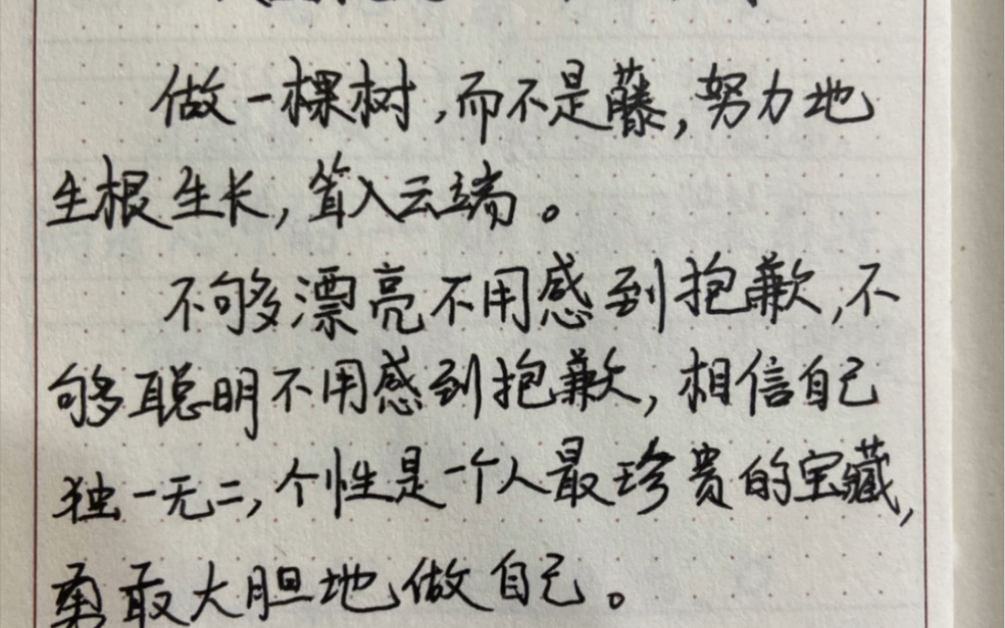 做一棵树,而不是藤,努力地
生根生长,耸入云端。
不够漂亮不用感到抱歉,不
够聪明不用感到抱歉,相信自己
独一无二,个性是一个人最珍贵的宝藏,
勇敢大胆地做自己。